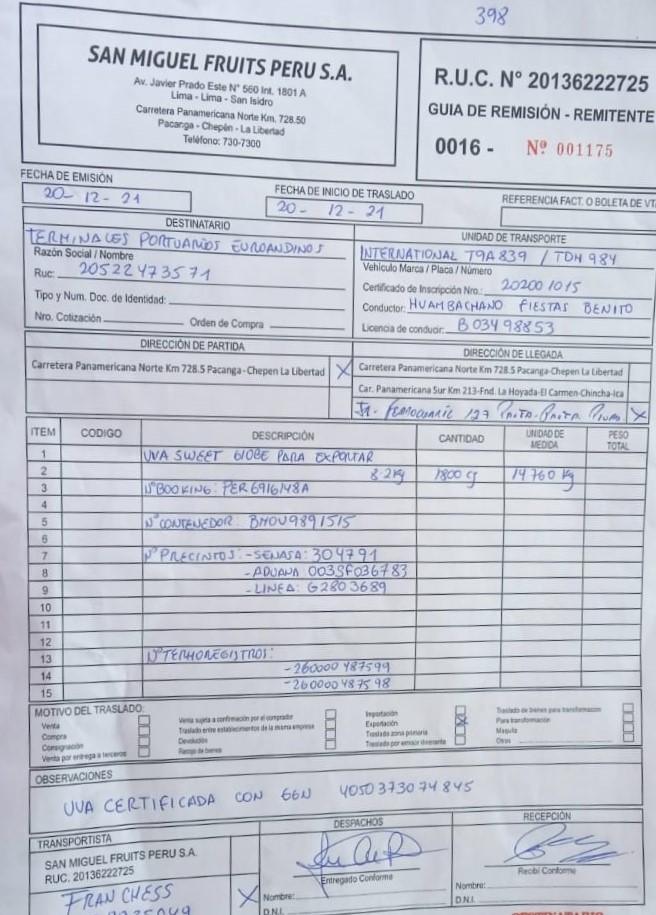 398
SAN MIGUEL FRUITS PERU S.A.
Av. Javier Prado Este N° 560 Int. 1801 A
Lima - Lima - San Isidro
Carretera Panamericana Norte Km. 728.50
Pacanga - Chepén - La Libertad
Teléfono: 730-7300
R.U.C. N° 20136222725
GUIA DE REMISIÓN - REMITENTE
0016 - Nº 001175
FECHA DE EMISIÓN
20- 12 - 21
FECHA DE INICIO DE TRASLADO
20- 12 - 21
REFERENCIA FACT. O BOLETA DE VTA
DESTINATARIO
TERMINALES PORTUARIOS EUROANDINOS
Razón Social / Nombre
Ruc: 20522473571
Tipo y Num. Doc. de Identidad:
Nro. Cotización Orden de Compra
UNIDAD DE TRANSPORTE
INTERNATIONAL T9A839 / TDH 984
Vehículo Marca / Placa / Número
Certificado de Inscripción Nro.: 202001015
Conductor: HUAMBACHANO FIESTAS BENITO
Licencia de conducir: B03498853
DIRECCIÓN DE PARTIDA
Carretera Panamericana Norte Km 728.5 Pacanga-Chepen La Libertad X
DIRECCIÓN DE LLEGADA
Carretera Panamericana Norte Km 728.5 Pacanga-Chepen La Libertad
Car. Panamericana Sur Km 213-Fnd. La Hoyada-El Carmen-Chincha-Ica
Jr. Ferrocarril 127 Paita-Paita Piura X
ITEM CODIGO DESCRIPCIÓN CANTIDAD UNIDAD DE MEDIDA PESO TOTAL
1 UVA SWEET GLOBE PARA EXPORTAR
2 8.2kg 1800 cj 14760 kg
3 N° BOOKING: PER6916148A
4
5 N° CONTENEDOR: BMOU9891515
6
7 N° PRECINTOS: -SENASA: 304791
8 -ADUANA 003SF036783
9 -LINEA: G2803689
10
11
12
13 N° TERMOREGISTROS:
14 -260000487599
15 -260000487598
MOTIVO DEL TRASLADO:
Venta
Compra
Consignación
Venta por entrega a terceros
Venta sujeta a confirmación por el comprador
Traslado entre establecimientos de la misma empresa
Devolución
Recojo de bienes
Importación
Exportación X
Traslado zona primaria
Traslado por emisor itinerante
Traslado de bienes para transformación
Para transformación
Maquila
Otros
OBSERVACIONES
UVA CERTIFICADA CON GGN 4050373074845
TRANSPORTISTA
SAN MIGUEL FRUITS PERU S.A.
RUC. 20136222725
FRANCHESS X
DESPACHOS
Entregado Conforme
Nombre:
D.N.I.
RECEPCIÓN
Recibí Conforme
Nombre:
D.N.I.